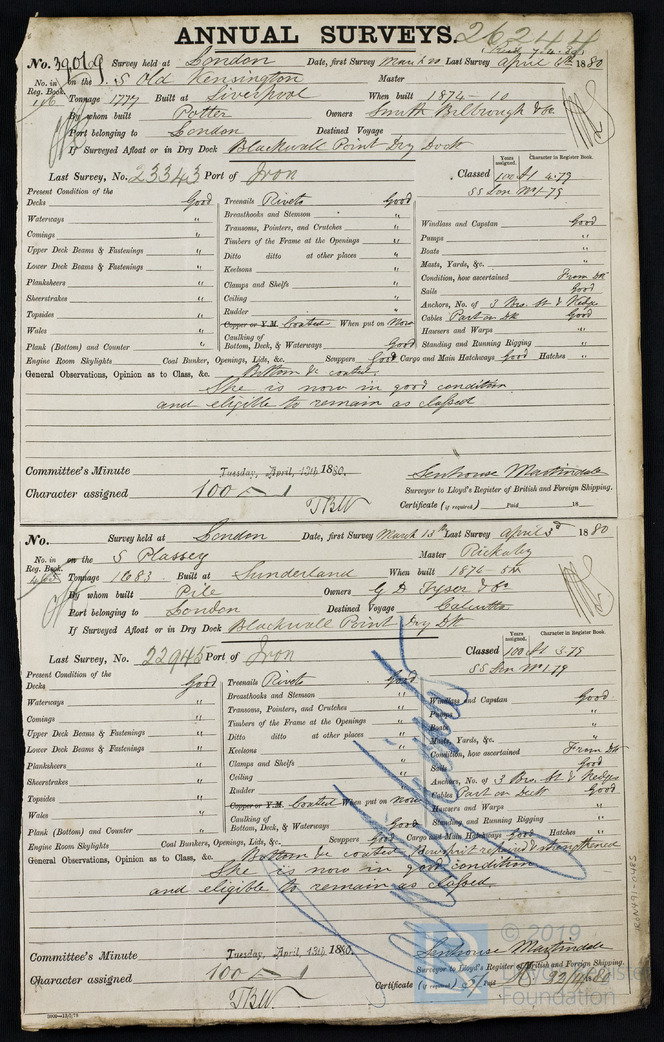 ANNUAL SURVEYS. 26244
No. 39019 Survey held at London Date, first Survey March 20 Last Survey April 6th 1880
No. in Reg. Book. 146 on the S Old Kensington Master
Tonnage 1777 Built at Liverpool When built 1874 - 10
By whom built Potter Owners Smith Bilbrough & Co
Port belonging to London Destined Voyage
If Surveyed Afloat or in Dry Dock Blackwall Point Dry Dock
Last Survey, No. 23343 Port of Iron Classed Years assigned. 100 A1 Character in Register Book. 4.79
SS Lon No1-79
Present Condition of the
Decks Good Treenails Rivets Good
Waterways " Breasthooks and Stemson " Windlass and Capstan Good
Comings " Transoms, Pointers, and Crutches " Pumps "
Upper Deck Beams & Fastenings " Timbers of the Frame at the Openings " Boats "
Lower Deck Beams & Fastenings " Ditto ditto at other places " Masts, Yards, &c. "
Planksheers " Keelsons " Condition, how ascertained From Dk
Sheerstrakes " Clamps and Shelfs " Sails Good
Topsides " Ceiling " Anchors, No. of 3 Brs. St & Kedge
Wales " Rudder " Cables Part on Dk Good
Copper or Y.M. Coated When put on Now Hawsers and Warps "
Plank (Bottom) and Counter " Caulking of Bottom, Deck, & Waterways Good Standing and Running Rigging "
Engine Room Skylights Coal Bunker, Openings, Lids, &c. Scuppers Good Cargo and Main Hatchways Good Hatches "
General Observations, Opinion as to Class, &c. Bottom &c coated
She is now in good condition
and eligible to remain as classed
Committee's Minute Tuesday, April, 13th 1880. Senhouse Martindale
Character assigned 100 A 1 Surveyor to Lloyd's Register of British and Foreign Shipping.
TBW Certificate (if required) Paid 18
No. Survey held at London Date, first Survey March 13th Last Survey April 3d 1880
No. in Reg. Book. 465 on the S Plassey Master Rickaby
Tonnage 1683 Built at Sunderland When built 1874 5m
By whom built Pile Owners G D Tyser & Co
Port belonging to London Destined Voyage Calcutta
If Surveyed Afloat or in Dry Dock Blackwall Point Dry Dk
Last Survey, No. 22945 Port of Iron Classed Years assigned. 100 A1 Character in Register Book. 3.79
SS Lon No1.79
Present Condition of the
Decks Good Treenails Rivets Good
Waterways " Breasthooks and Stemson " Windlass and Capstan Good
Comings " Transoms, Pointers, and Crutches " Pumps "
Upper Deck Beams & Fastenings " Timbers of the Frame at the Openings " Boats "
Lower Deck Beams & Fastenings " Ditto ditto at other places " Masts, Yards, &c. "
Planksheers " Keelsons " Condition, how ascertained From Dk
Sheerstrakes " Clamps and Shelfs " Sails Good
Topsides " Ceiling " Anchors, No. of 3 Brs. St & Kedges
Wales " Rudder " Cables Part on Deck Good
Copper or Y.M. Coated When put on now Hawsers and Warps "
Plank (Bottom) and Counter " Caulking of Bottom, Deck, & Waterways Good Standing and Running Rigging "
Engine Room Skylights Coal Bunkers, Openings, Lids, &c. Scuppers Good Cargo and Main Hatchways Good Hatches "
General Observations, Opinion as to Class, &c. Bottom &c coated Bowsprit repaired & strengthened
She is now in good condition
and eligible to remain as classed
Committee's Minute Tuesday, April, 13th 1880. Senhouse Martindale
Character assigned 100 A 1 Surveyor to Lloyd's Register of British and Foreign Shipping.
TBW Certificate (if required) Paid
IRON491-0485
© 2019
Foundation